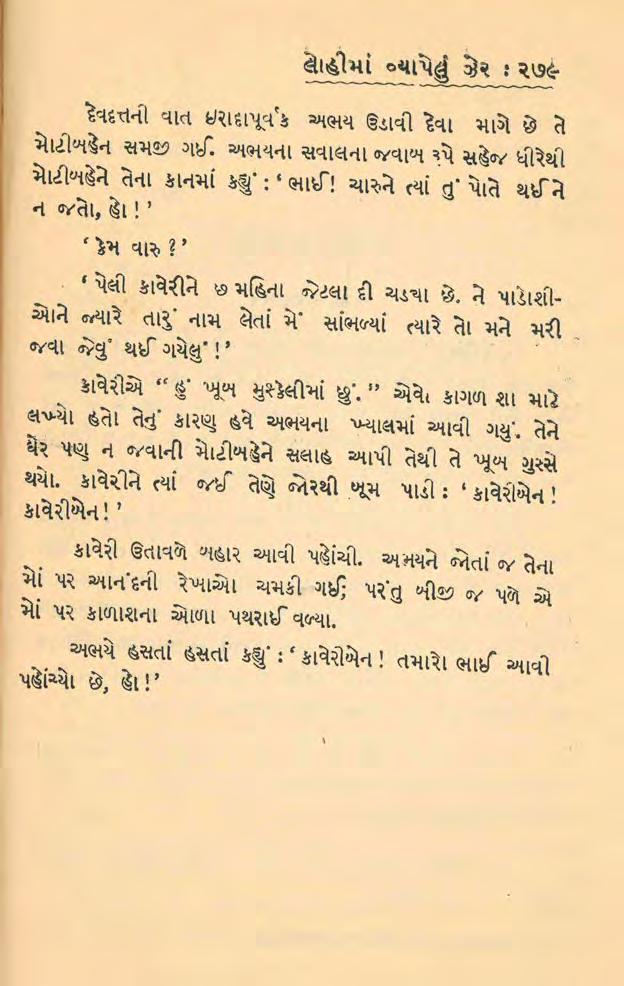 લોહીમાં વ્યાપેલું ઝેર : ૨૭૯
દેવદત્તની વાત ઇરાદાપૂર્વક અભય ઉડાવી દેવા માગે છે તે
મોટીબહેન સમજી ગઈ. અભયના સવાલના જવાબ રૂપે સહેજ ધીરેથી
મોટીબહેને તેના કાનમાં કહ્યું : ‘ ભાઈ! ચારુને ત્યાં તું પોતે થઈને
ન જતો, હો ! ’
‘ કેમ વારુ ? ’
‘ પેલી કાવેરીને છ મહિના જેટલા દી ચડ્યા છે. ને પાડોશી-
ઓને જ્યારે તારું નામ લેતાં મેં સાંભળ્યાં ત્યારે તો મને મરી
જવા જેવું થઈ ગયેલું ! ’
કાવેરીએ “ હું ખૂબ મુશ્કેલીમાં છું. ” એવો કાગળ શા માટે
લખ્યો હતો તેનું કારણ હવે અભયના ખ્યાલમાં આવી ગયું. તેને
ઘેર પણ ન જવાની મોટીબહેને સલાહ આપી તેથી તે ખૂબ ગુસ્સે
થયો. કાવેરીને ત્યાં જઈ તેણે જોરથી બૂમ પાડી : ‘ કાવેરીબેન !
કાવેરીબેન ! ’
કાવેરી ઉતાવળે બહાર આવી પહોંચી. અભયને જોતાં જ તેના
મોં પર આનંદની રેખાઓ ચમકી ગઈ; પરંતુ બીજી જ પળે એ
મોં પર કાળાશના ઓળા પથરાઈ વળ્યા.
અભયે હસતાં હસતાં કહ્યું : ‘ કાવેરીબેન ! તમારો ભાઈ આવી
પહોંચ્યો છે, હો ! ’